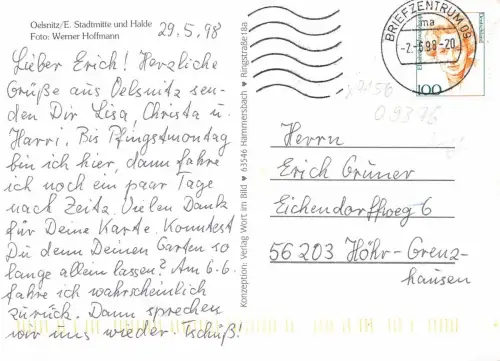 Oelsnitz/E. Stadtmitte und Halde
Foto: Werner Hoffmann
29.5.98
Lieber Erich! Herzliche
Grüße aus Oelsnitz sen-
den Dir Lisa, Christa u.
Harri. Bis Pfingstmontag
bin ich hier, dann fahre
ich noch ein paar Tage
nach Zeitz. Vielen Dank
für Deine Karte. Konntest
Du denn Deinen Garten so
lange allein lassen? Am 6.6.
fahre ich wahrscheinlich
zurück. Dann sprechen
wir uns wieder. Tschüß!
Konzeption: Verlag Wort im Bild ♥ 63546 Hammersbach ♥ Ringstraße 18a
BRIEFZENTRUM 09
ma
-2.-6.98-20
Deutschland
100
09376
Herrn
Erich Grüner
Eichendorffweg 6
56 203 Höhr-Grenz-
hausen